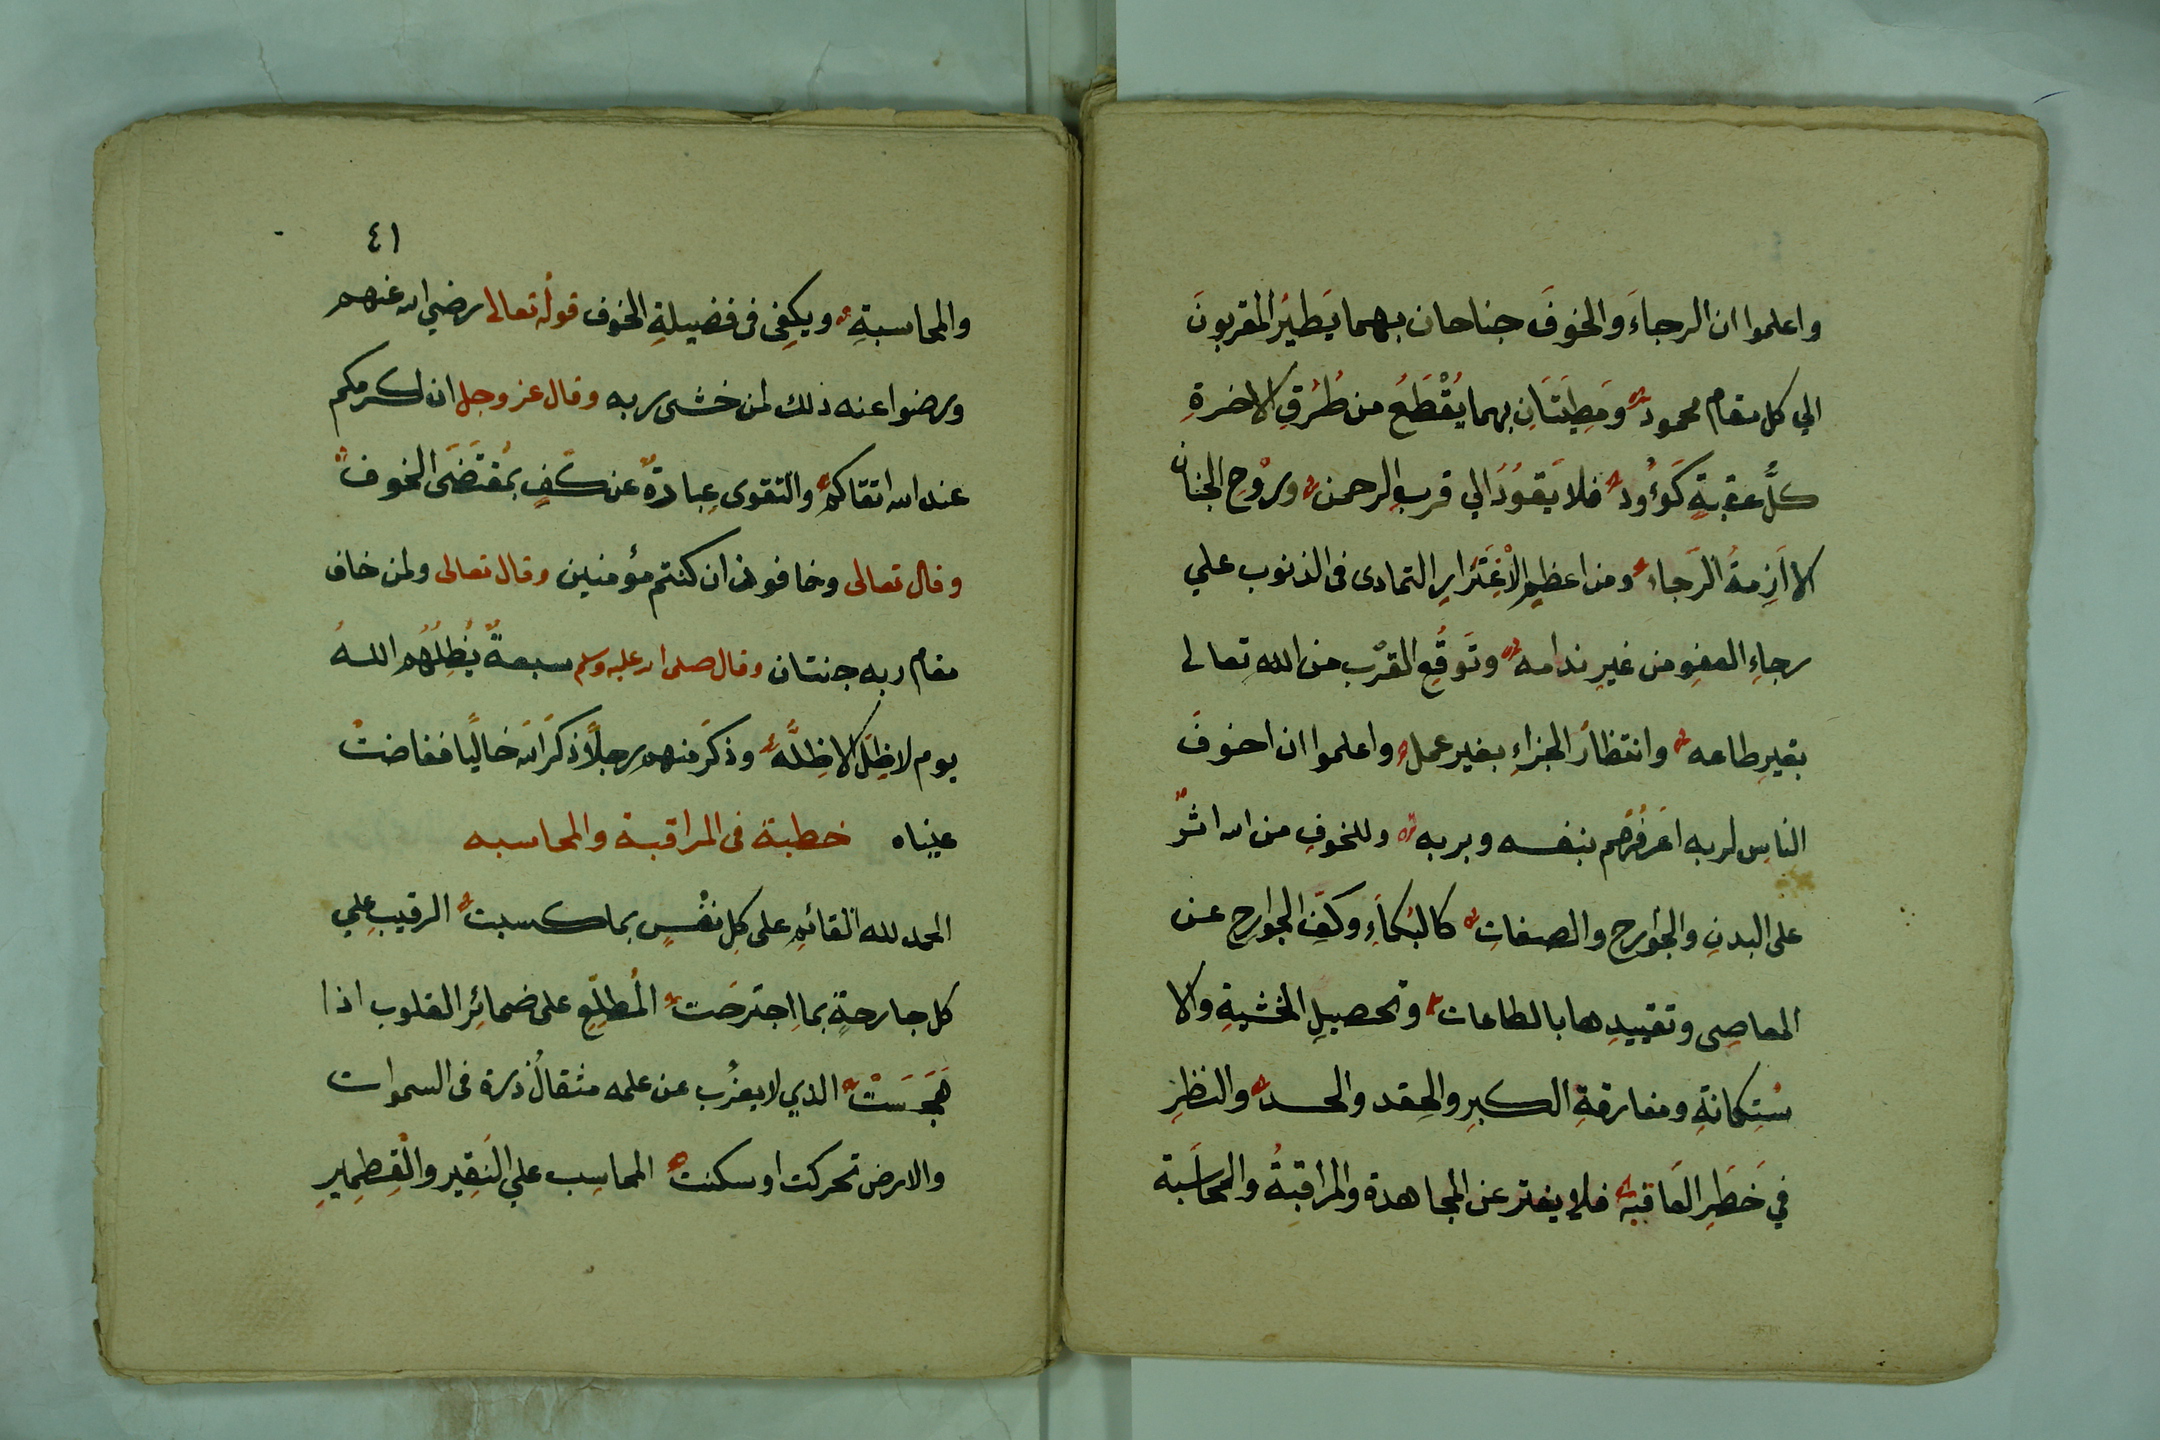 واعلموا ان الرجاءَ والخوفَ جناحان بهما يَطيرُ المقربونَ
الي كل مقام محمود ومَطِيَّتَانِ بهما يُقْطَعُ من طُرُقِ الاخرةِ
كلُّ عقبةٍ كَوُءُود فلا يَقوُدُ الي قربِ الرحمن وروْحِ الجنان
الا اَزِمةُ الرَجاء ومن اعظمِ الاْغِتَرارِ التمادى فى الذنوب علي
رجاءِ العفوِ من غيرِ ندامه وتَوقُّعِ القرْب من الله تعالى
بغيرِ طاعه وانتظارُ الجزاءِ بغير عمل واعلموا ان اخوفَ
الناسِ لربه اعَرفُهم بنفسه وبربه وللخوفِ من الله اثرٌ
على البدنِ والجوَارح والصفاتِ كالبُكاَءِ وكَفِّ الجوارحِ عن
المعاصِى وتقييدِها بالطاعات وتحصيلِ الخشيةِ والا
سْتِكانةِ ومفارقةِ الكبرِ والحِقد والحسد والنظرِ
فِي خَطَرِ العَاقبه فلا يفتر عن المجاهدة والمراقبةُ والمحَاسَبة
٤١
والمحاسبةِ ويكفِى فى فضيلةِ الخوف قولُه تعالى رضي الله عنهم
ورضوا عنه ذلك لمن خشى ربه وقال عز وجل ان اكرمكم
عند الله اتقاكم والتقوى عِبارةٌ عن كَفٍّ بمُقتَضَى الخوف
وقال تعالى وخافون ان كنتم مؤمنين وقال تعالى ولمن خاف
مقام ربه جنتان وقال صلى الله عليه وسلم سبعةٌ يُظِلُهُم اللهُ
يوم لا ظِلَّ الا ظِلُّهُ وذكَر منهم رجلًا ذكَرَ الله خاليًا ففاضتْ
عيناه خطبة فى المراقبة والمحاسبه
الحمد لله القائمِ على كلِ نفْسٍ بما كسبت الرقيبِ علي
كل جارحةٍ بما اجترحَت المُطلِّعِ على ضمائِر القلوب اذا
هَجَسَتْ الذي لا يعزُب عن علمه مثقالُ ذرة فى السموات
والارض تحركت او سكنت المحاسِب علي النَقِيرِ والْقِطمِيرِ